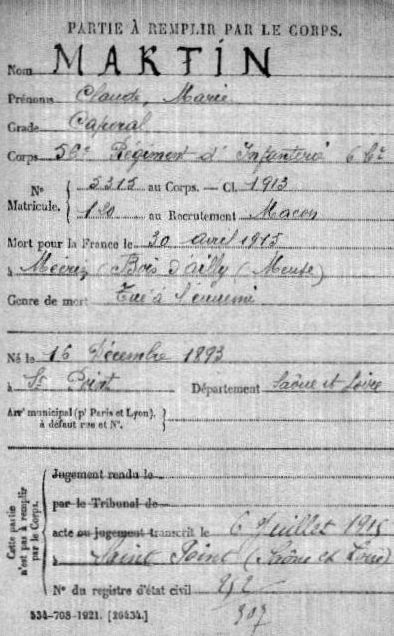 PARTIE À REMPLIR PAR LE CORPS.
Nom MARTIN
Prénoms Claude, Marie
Grade Caporal
Corps 56e Régiment d'Infanterie 6 Cie
N° 5315 au Corps. — Cl. 1913
Matricule. 130 au Recrutement Macon
Mort pour la France le 30 avril 1915
à (Bois d'ailly (Meuse)
Genre de mort Tué à l'ennemi
Né le 16 Décembre 1893
à St Point Département Saône et Loire
Arrt municipal (pr Paris et Lyon), à défaut rue et N°.
Cette partie n'est pas à remplir par le Corps.
Jugement rendu le
par le Tribunal de
acte ou jugement transcrit le 6 Juillet 1915
à Saint Point (Saône et Loire)
N° du registre d'état civil
307
534-708-1921. [26434.]